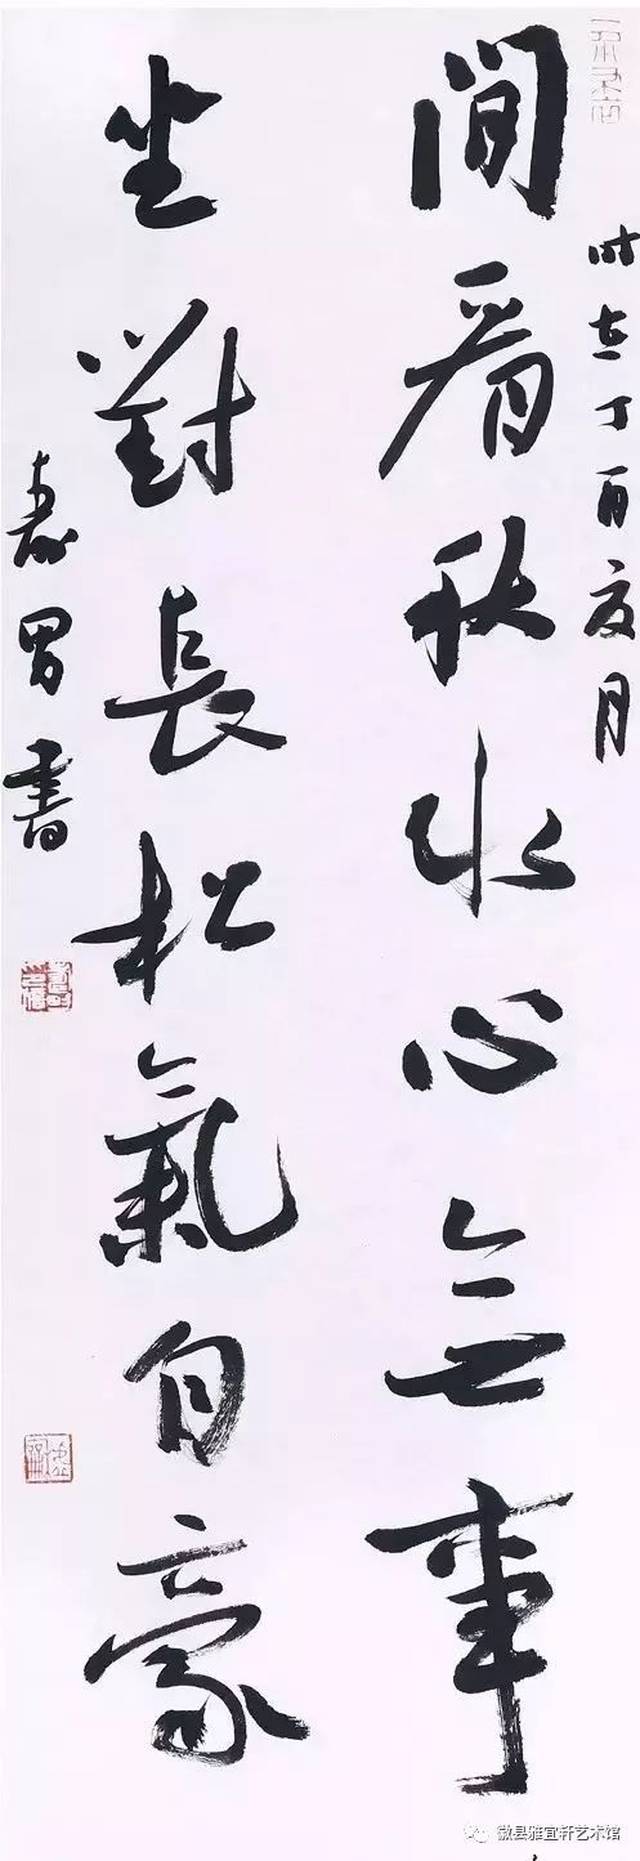 時在丁酉夏月
閒看秋水心無事
坐對長松氣自豪
書
徽县雅宜轩艺术馆